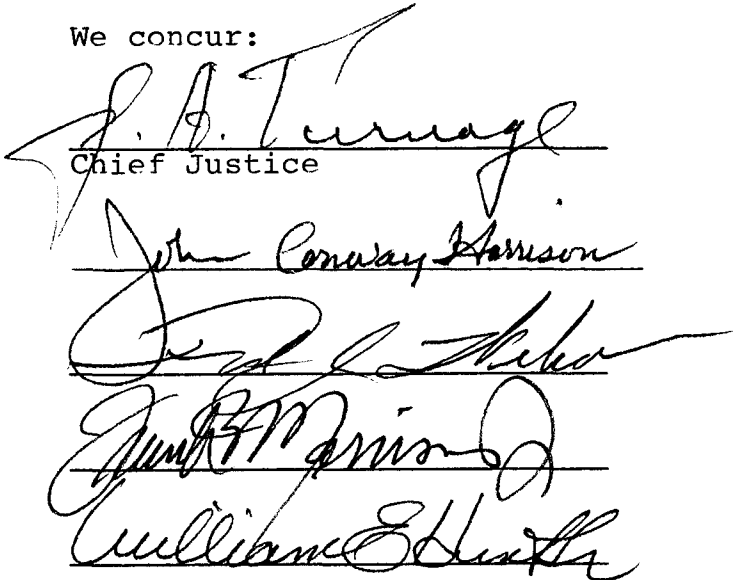 We concur:
J. A. Turnage
Chief Justice
John Conway Harrison
Frank B. Morrison Jr
William E Hunt Sr